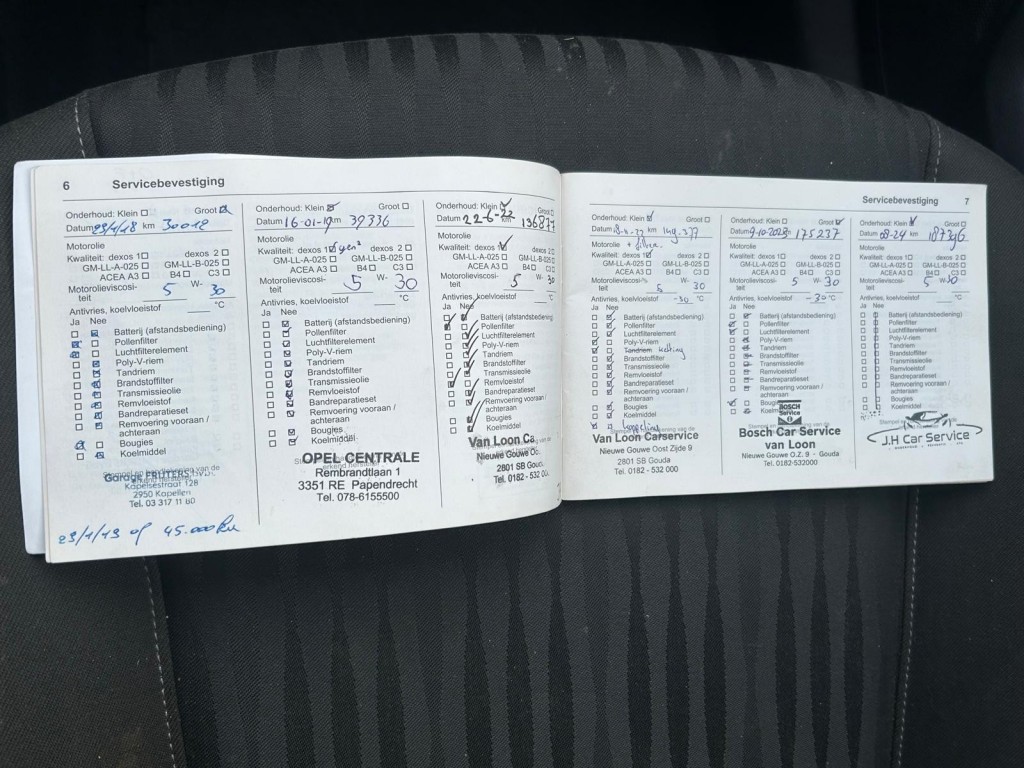 6 Servicebevestiging
Onderhoud: Klein Groot
Datum km 30012
Motorolie
Kwaliteit: dexos 1 dexos 2
GM-LL-A-025 GM-LL-B-025
ACEA A3 B4 C3
Motorolieviscosi- 5 W- 30
teit
Antivries, koelvloeistof °C
Ja Nee
Batterij (afstandsbediening)
Pollenfilter
Luchtfilterelement
Poly-V-riem
Tandriem
Brandstoffilter
Transmissieolie
Remvloeistof
Bandreparatieset
Remvoering vooraan /
achteraan
Bougies
Koelmiddel
Garage
Kapelsestraat 128
2950 Kapellen
Tel. 03 317 11 80
29/1/19 of 45.000 km
Onderhoud: Klein Groot
Datum 16-01-19 km 39336
Motorolie
Kwaliteit: dexos 1 dexos 2
GM-LL-A-025 GM-LL-B-025
ACEA A3 B4 C3
Motorolieviscosi- 5 W- 30
teit
Antivries, koelvloeistof °C
Ja Nee
Batterij (afstandsbediening)
Pollenfilter
Luchtfilterelement
Poly-V-riem
Tandriem
Brandstoffilter
Transmissieolie
Remvloeistof
Bandreparatieset
Remvoering vooraan /
achteraan
Bougies
Koelmiddel
OPEL CENTRALE
Rembrandtlaan 1
3351 RE Papendrecht
Tel. 078-6155500
Onderhoud: Klein Groot
Datum 22-6-22 km 136877
Motorolie
Kwaliteit: dexos 1 dexos 2
GM-LL-A-025 GM-LL-B-025
ACEA A3 B4 C3
Motorolieviscosi- 5 W- 30
teit
Antivries, koelvloeistof °C
Ja Nee
Batterij (afstandsbediening)
Pollenfilter
Luchtfilterelement
Poly-V-riem
Tandriem
Brandstoffilter
Transmissieolie
Remvloeistof
Bandreparatieset
Remvoering vooraan /
achteraan
Bougies
Koelmiddel
Van Loon Ca
Nieuwe Gouwe Oo
2801 SB Gouda
Tel. 0182 - 532 00
Servicebevestiging 7
Onderhoud: Klein Groot
Datum km 149.377
Motorolie + filter
Kwaliteit: dexos 1 dexos 2
GM-LL-A-025 GM-LL-B-025
ACEA A3 B4 C3
Motorolieviscosi- 5 W- 30
teit
Antivries, koelvloeistof -30 °C
Ja Nee
Batterij (afstandsbediening)
Pollenfilter
Luchtfilterelement
Poly-V-riem
Tandriem ketting
Brandstoffilter
Transmissieolie
Remvloeistof
Bandreparatieset
Remvoering vooraan /
achteraan
Bougies
Koelmiddel
koppeling
Van Loon Carservice
Nieuwe Gouwe Oost Zijde 9
2801 SB Gouda
Tel. 0182 - 532 000
Onderhoud: Klein Groot
Datum 9-10-2023 km 175237
Motorolie
Kwaliteit: dexos 1 dexos 2
GM-LL-A-025 GM-LL-B-025
ACEA A3 B4 C3
Motorolieviscosi- 5 W- 30
teit
Antivries, koelvloeistof -30 °C
Ja Nee
Batterij (afstandsbediening)
Pollenfilter
Luchtfilterelement
Poly-V-riem
Tandriem
Brandstoffilter
Transmissieolie
Remvloeistof
Bandreparatieset
Remvoering vooraan /
achteraan
Bougies
Koelmiddel
BOSCH
Service
Bosch Car Service
van Loon
Nieuwe Gouwe O.Z. 9 - Gouda
Tel. 0182-532000
Onderhoud: Klein Groot
Datum 08-24 km 187396
Motorolie
Kwaliteit: dexos 1 dexos 2
GM-LL-A-025 GM-LL-B-025
ACEA A3 B4 C3
Motorolieviscosi- 5 W- 30
teit
Antivries, koelvloeistof °C
Ja Nee
Batterij (afstandsbediening)
Pollenfilter
Luchtfilterelement
Poly-V-riem
Tandriem
Brandstoffilter
Transmissieolie
Remvloeistof
Bandreparatieset
Remvoering vooraan /
achteraan
Bougies
Koelmiddel
J.H Car Service